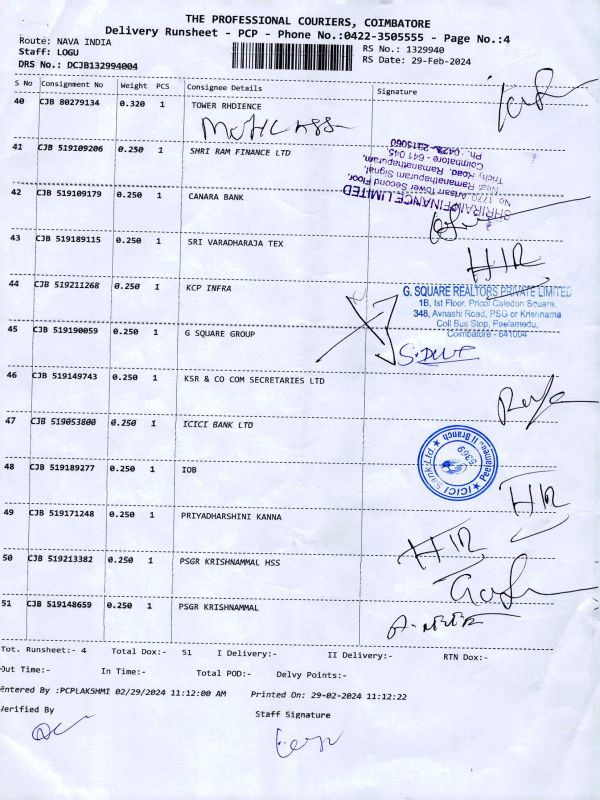 THE PROFESSIONAL COURIERS, COIMBATORE
Delivery Runsheet - PCP - Phone No.:0422-3505555 - Page No.:4
Route: NAVA INDIA
Staff: LOGU
DRS No.: DCJB132994004
RS No.: 1329940
RS Date: 29-Feb-2024
S No Consignment No Weight PCS Consignee Details Signature
40 CJB 80279134 0.320 1 TOWER RHDIENCE
41 CJB 519109206 0.250 1 SHRI RAM FINANCE LTD
SHRIRAM FINANCE LIMITED
Second Floor,
Near Ramanathapuram Signal,
Trichy Road, Ramanathapuram,
Coimbatore - 641 045.
42 CJB 519109179 0.250 1 CANARA BANK
43 CJB 519189115 0.250 1 SRI VARADHARAJA TEX
HIR
44 CJB 519211268 0.250 1 KCP INFRA
G. SQUARE REALTORS PRIVATE LIMITED
1B, Ist Floor, Pricol Caledon Square,
348, Avnashi Road, PSG or Krishnama
Coll Bus Stop, Peelamedu,
Coimbatore - 641004
45 CJB 519190059 0.250 1 G SQUARE GROUP
46 CJB 519149743 0.250 1 KSR & CO COM SECRETARIES LTD
47 CJB 519053800 0.250 1 ICICI BANK LTD
ICICI Bank Ltd. ★ Peelamedu II Branch ★
5369
48 CJB 519189277 0.250 1 IOB
HIR
49 CJB 519171248 0.250 1 PRIYADHARSHINI KANNA
HIR
50 CJB 519213382 0.250 1 PSGR KRISHNAMMAL HSS
51 CJB 519148659 0.250 1 PSGR KRISHNAMMAL
Tot. Runsheet:- 4 Total Dox:- 51 I Delivery:- II Delivery:- RTN Dox:-
Out Time:- In Time:- Total POD:- Delvy Points:-
Entered By :PCPLAKSHMI 02/29/2024 11:12:00 AM Printed On: 29-02-2024 11:12:22
Verified By Staff Signature